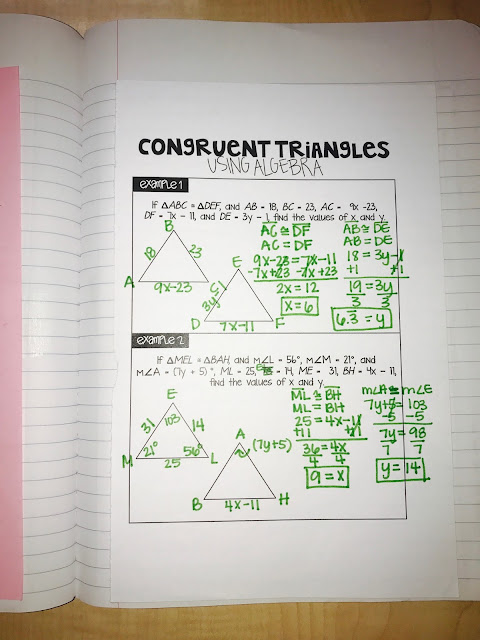 CONGRUENT TRIANGLES
USING ALGEBRA
example 1
If △ABC ≅ △DEF, and AB = 18, BC = 23, AC = 9x -23,
DF = 7x - 11, and DE = 3y - 1, find the values of x and y.
B
18
23
A
9x-23
E
3y-1
D
7x-11
F
AC ≅ DF
AC = DF
9x-23 = 7x-11
-7x+23 -7x+23
2x = 12
x = 6
AB ≅ DE
AB = DE
18 = 3y-1
+1 +1
19 = 3y
3 3
6.3 = y
example 2
If △MEL ≅ △BAH, and m∠L = 56°, m∠M = 21°, and
m∠A = (7y + 5)°, ML = 25, = 14, ME = 31, BH = 4x - 11,
find the values of x and y.
E
103
31
14
M
21°
56°
L
25
A
(7y+5)
B
4x-11
H
ML ≅ BH
ML = BH
25 = 4x-11
+11 +11
36 = 4x
4 4
9 = x
m∠A ≅ m∠E
7y+5 = 103
-5 -5
7y = 98
7 7
y = 14